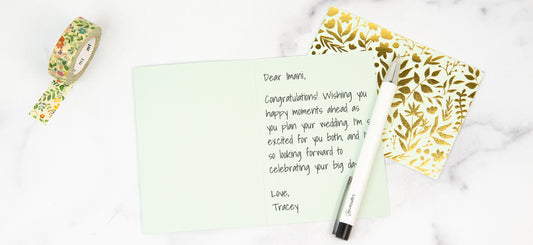 Dear Imani,
Congratulations! Wishing you
happy moments ahead as
you plan your wedding. I'm s
excited for you both, and I
so looking forward to
celebrating your big da
Love,
Tracey
mt